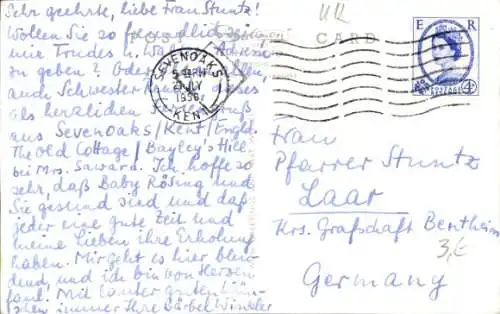 Sehr geehrte, liebe Frau Stuntz!
Wollen Sie so freundlich sein
mir Trudes u. Adresse
zu geben? Oder
auch Schwester dieses
als herzlichen Gruß
aus Sevenoaks/Kent/Engld.
The Old Cottage/Bayley's Hill
bei Mrs. Saward. Ich hoffe so
sehr, daß Baby Rösing und
Sie gesund sind und daß
jeder eine gute Zeit und
meine Lieben ihre Erholung
haben. Mir geht es hier blen-
dend, und ich bin von Herzen
faul! Mit lauter guten Wün-
schen immer Ihre Bärbel Winkler
POST CARD
SEVENOAKS
5 PM
JLY
1958
KENT
E R
POSTAGE
4D
UK
Frau
Pfarrer Stuntz
Laar
Krs. Grafschaft Bentheim
Germany
3,€